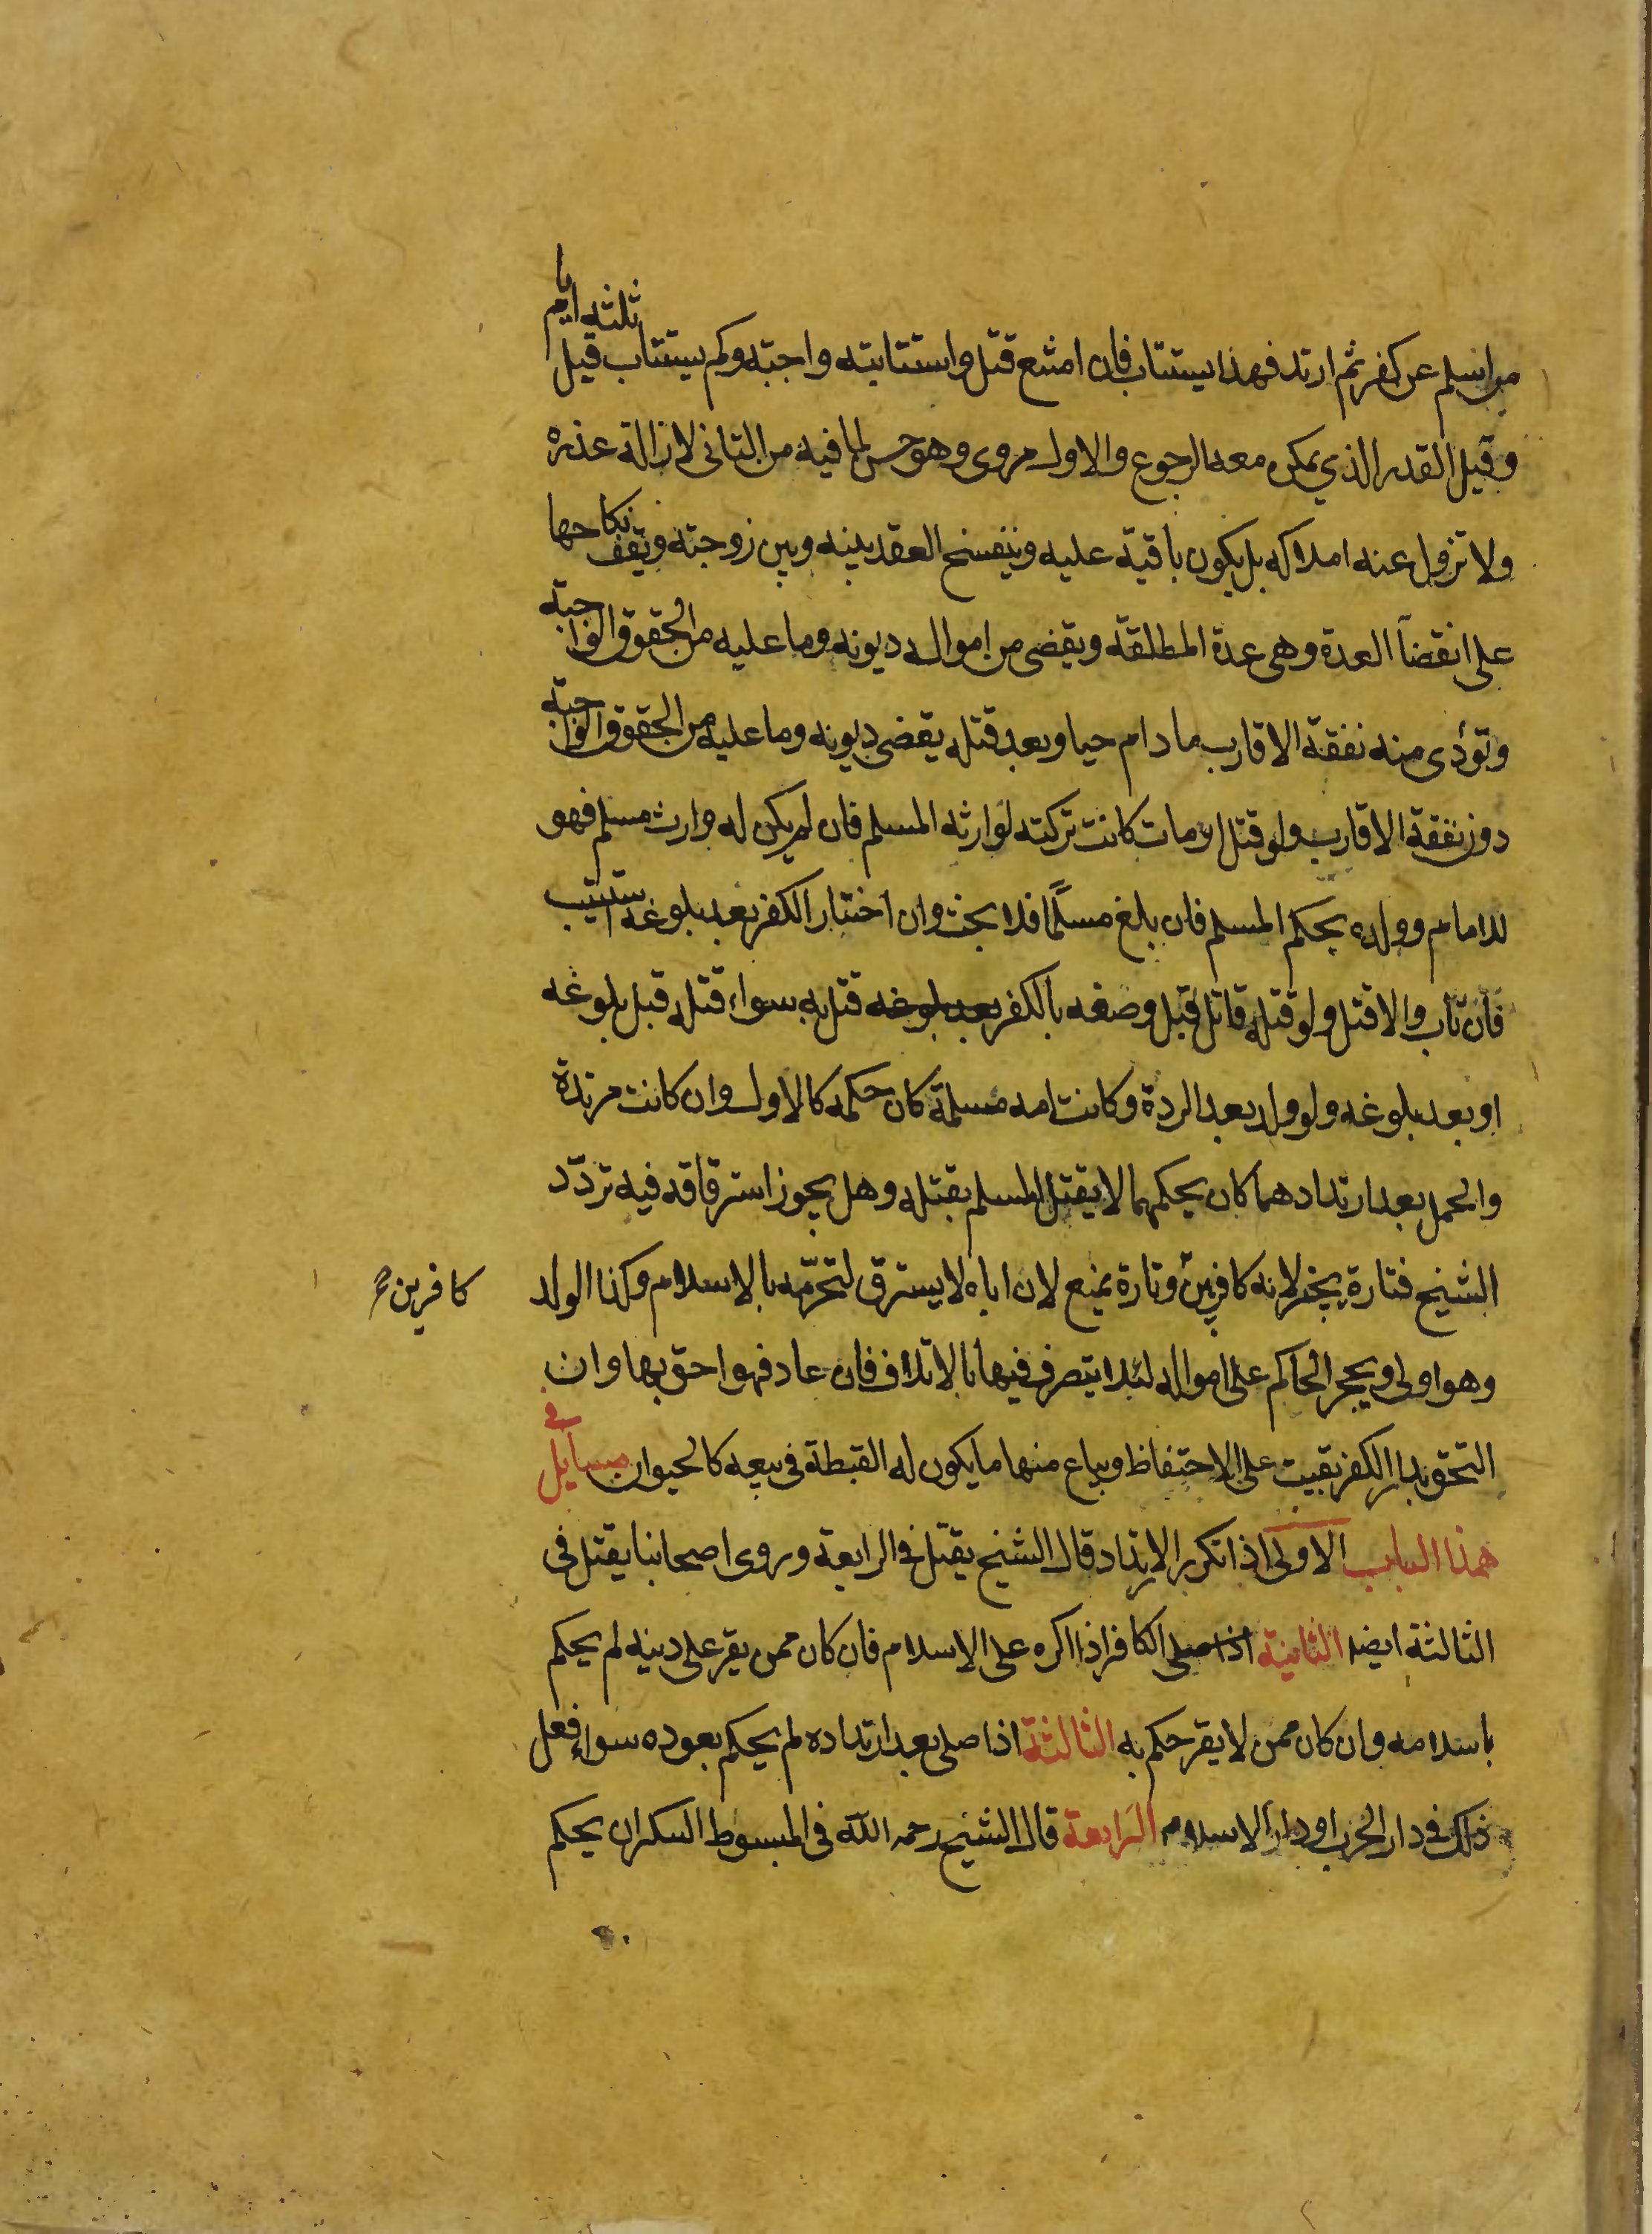 من اسلم عن كفر ثم ارتد فهذا يستتاب فان امتنع قتل واستتابته واجبة وكم يستتاب قيل ثلثه ايام
وقيل القدر الذي يمكن معه الرجوع والاول مروى وهو حسن لما فيه من التانى لازالة عذره
ولا تزول عنه املاكه بل يكون باقية عليه وينفسخ العقد بينه وبين زوجته وتقف نكاحها
على انقضآ العدة وهى عدة المطلقة ويقضى من امواله ديونه وما عليه من الحقوق الواجبة
وتؤدى منه نفقة الاقارب ما دام حيا وبعد قتله يقضى ديونه وما عليه من الحقوق الواجبة
دون نفقة الاقارب ولو قتل او مات كانت تركته لوارثه المسلم فان لم يكن له وارث مسلم فهو
للامام وولده بحكم المسلم فان بلغ مسلمًا فلا بحث وان اختار الكفر بعد بلوغه استتيب
فان تاب والا قتل ولو قتله قاتل قبل وصفه بالكفر بعد بلوغه قتل به سواء قتله قبل بلوغه
او بعد بلوغه ولو ولد بعد الردة وكانت امه مسلمة كان حكمه كالاول وان كانت مرتدة
والحمل بعد ارتدادهما كان بحكمهما لا يقتل المسلم بقتله وهل يجوز استرقاقه فيه تردّد
الشيخ فتارة يجيز لانه كافر بين وتارة يمنع لان اباه لا يسترق لتحرّمه بالاسلام وكذا الولد
كافرين
وهو اولى ويحجر الحاكم على امواله لئلا يتصرف فيها بالاتلاف فان عاد فهو احق بها وان
التحق بدار الكفر بقيت على الاحتفاظ ويباع منها ما يكون له القبطة فى بيعه كالحيوان مسايل فى
هذا الباب الاولى اذا تكرر الارتداد قال الشيخ يقتل فى الرابعة وروى اصحابنا يقتل فى
الثالثة ايضا الثانية اذا صلى الكافر اذا اكره على الاسلام فان كان ممن يقر على دينه لم يحكم
باسلامه وان كان ممن لا يقر حكم به الثالثة اذا صلى بعد ارتداده لم يحكم بعوده سواء فعل
ذلك فى دار الحرب او دار الاسلام الرابعة قال الشيخ رحمه الله فى المبسوط السكران يحكم